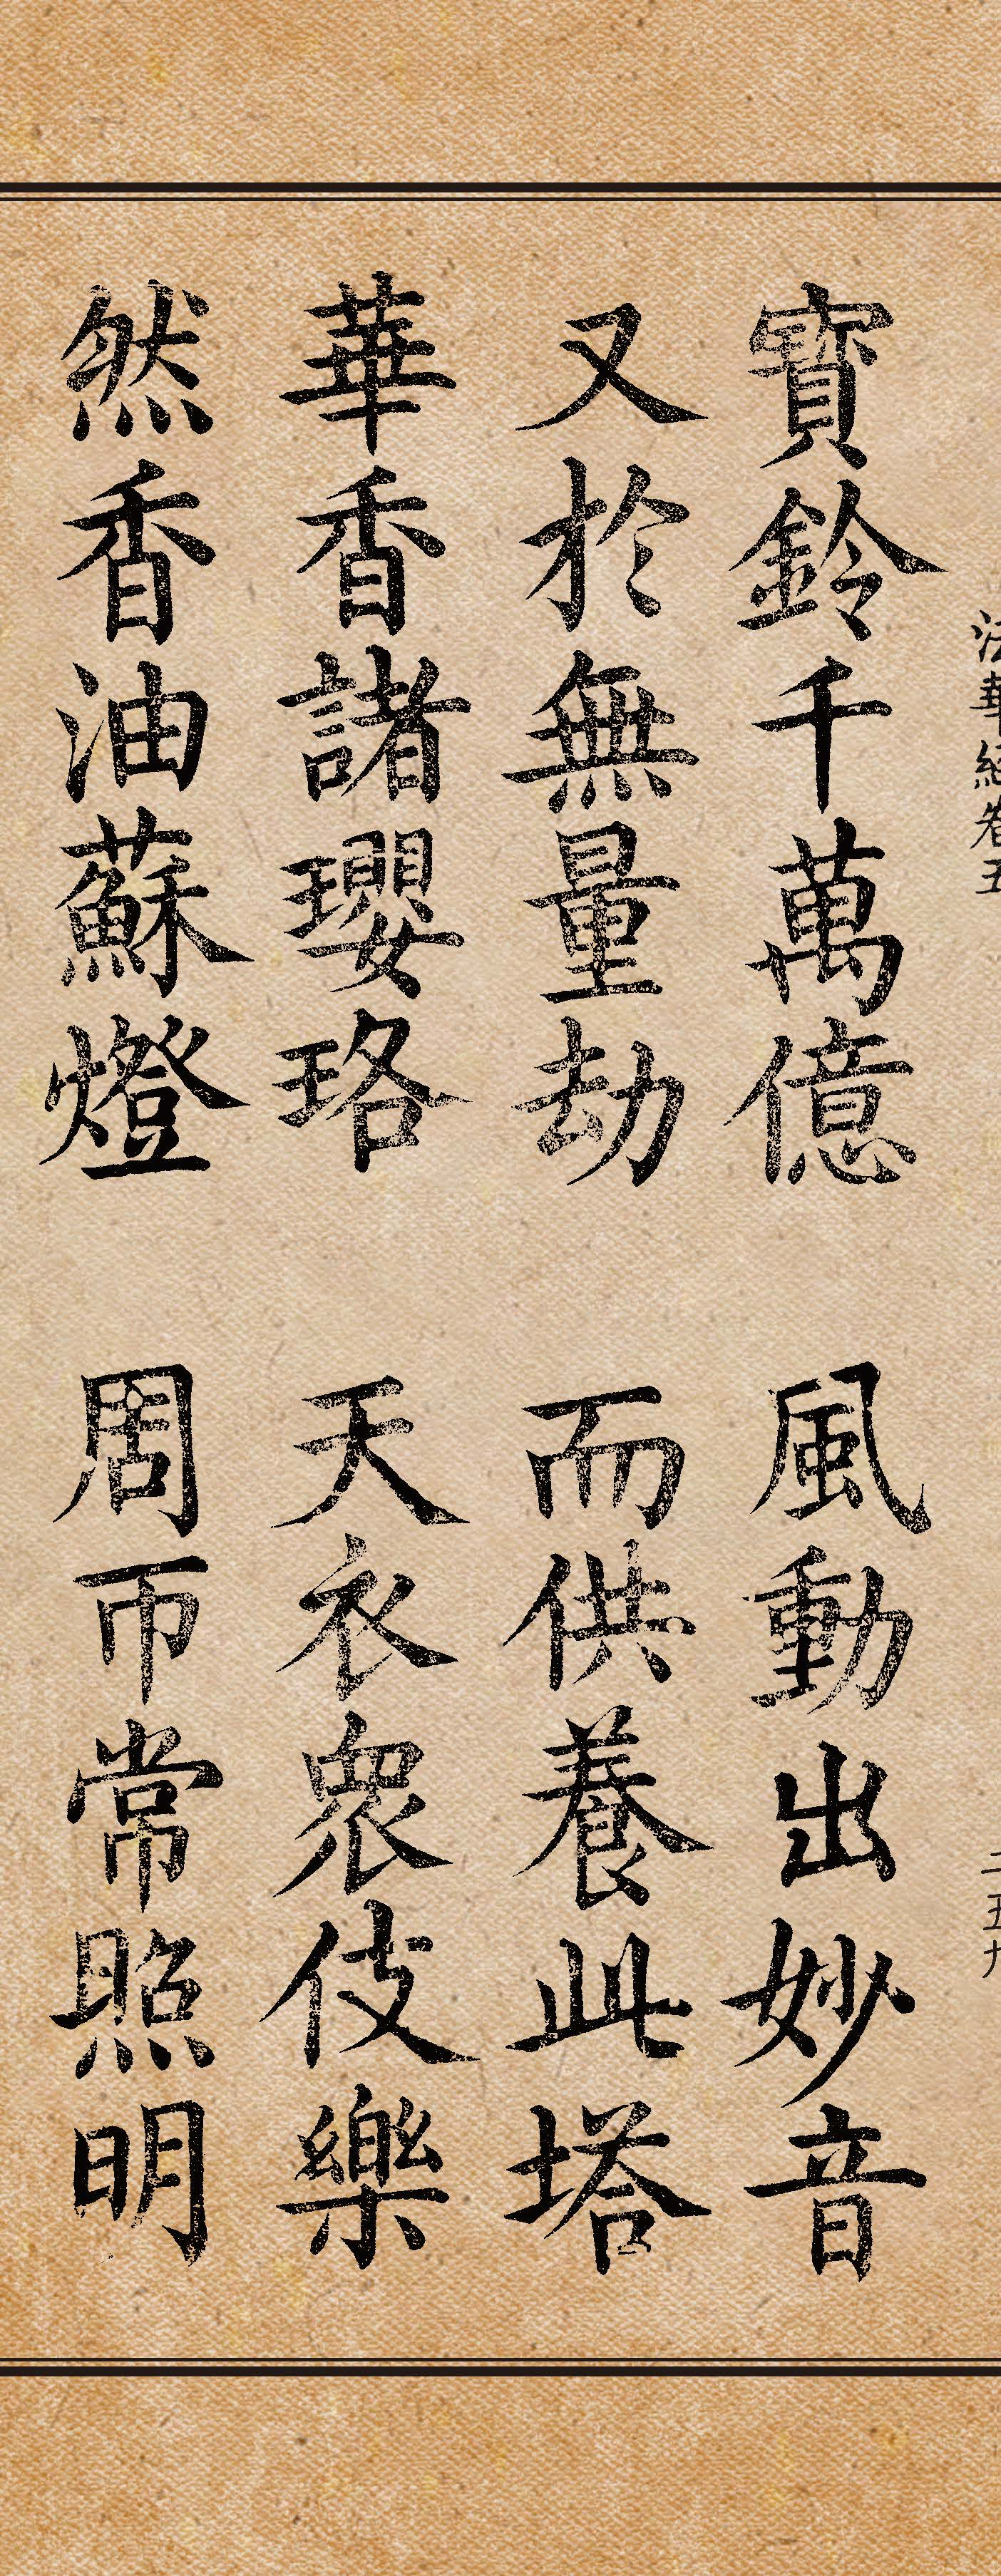 法華經卷五
二五九
寶鈴千萬億 風動出妙音
又於無量劫 而供養此塔
華香諸瓔珞 天衣眾伎樂
然香油蘇燈 周帀常照明